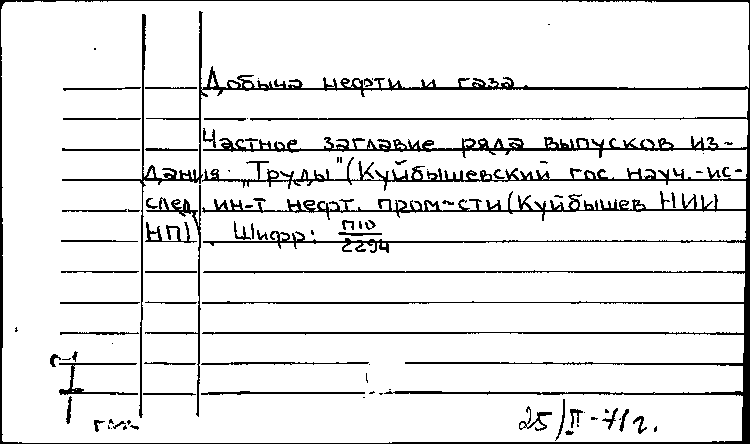 Добыча нефти и газа.
Частное заглавие ряда выпусков из-
дания: "Труды" (Куйбышевский гос. науч.-ис-
след. ин-т нефт. пром-сти (Куйбышев НИИ
НП)). Шифр: П10/2294
25/II-71г.